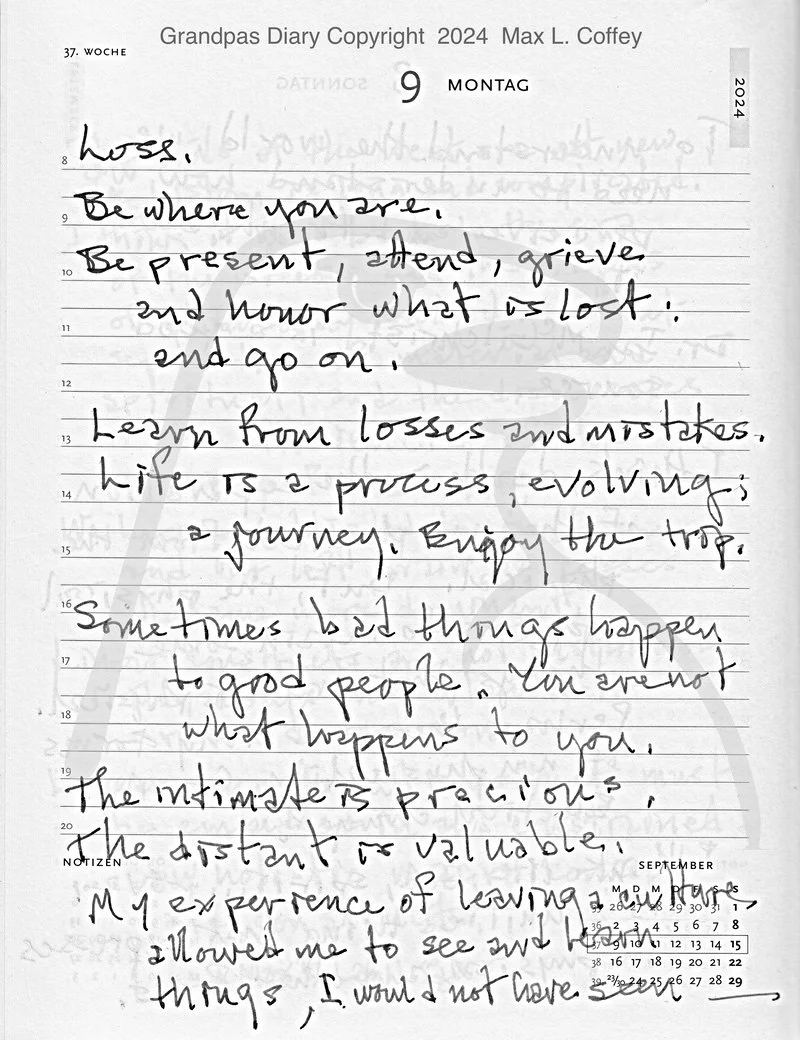 Grandpas Diary Copyright 2024 Max L. Coffey
37. WOCHE
9 MONTAG
2024
8 Loss.
9 Be where you are.
10 Be present, attend, grieve
and honor what is lost:
11 and go on.
12
13 Learn from losses and mistakes.
14 Life is a process, evolving;
15 a journey. Enjoy the trip.
16 Sometimes bad things happen
17 to good people. You are not
18 what happens to you.
19 The intimate is precious.
20 The distant is valuable.
NOTIZEN
SEPTEMBER
My experience of leaving a culture,
allowed me to see and learn
things, I would not have seen
M D M D F S S
35 26 27 28 29 30 31 1
36 2 3 4 5 6 7 8
37 9 10 11 12 13 14 15
38 16 17 18 19 20 21 22
39 23/30 24 25 26 27 28 29